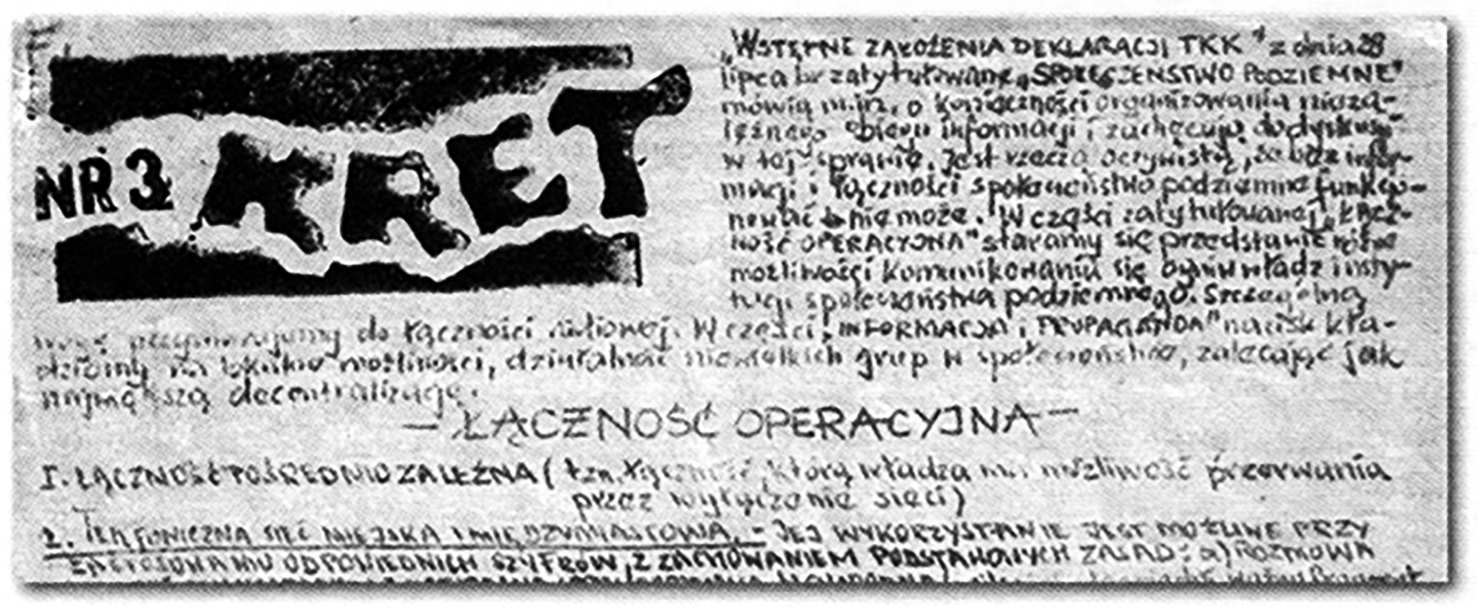 NR 3 KRET
„WSTĘPNE ZAŁOŻENIA DEKLARACJI TKK" z dnia 28
lipca br zatytułowane „SPOŁECZEŃSTWO PODZIEMNE"
mówią m.in. o konieczności organizowania nieza-
leżnego obiegu informacji i zachęcują do dyskusji
w tej sprawie. Jest rzeczą oczywistą, że bez infor-
macji i łączności społeczeństwo podziemne funkcjo-
nować nie może. W części zatytułowanej „ŁĄCZ-
NOŚĆ OPERACYJNA" staramy się przedstawić różne
możliwości komunikowania się ogniw władz i insty-
tucji społeczeństwa podziemnego. Szczególną
wagę przypisujemy do łączności radiowej. W części „INFORMACJA i PROPAGANDA" nacisk kła-
dziemy na lokalne możliwości, działalność niewielkich grup w społeczeństwie, zalecając jak
największą decentralizację.
— ŁĄCZNOŚĆ OPERACYJNA —
I. ŁĄCZNOŚĆ POŚREDNIO ZALEŻNA ( tzn. łączność, którą władza ma możliwość przerwania
przez wyłączenie sieci )
1. TELEFONICZNA SIEĆ MIEJSKA I MIĘDZYMIASTOWA. - JEJ WYKORZYSTANIE JEST MOŻLIWE PRZY
ZASTOSOWANIU ODPOWIEDNICH SZYFRÓW, Z ZACHOWANIEM PODSTAWOWYCH ZASAD: a) ROZMOWA